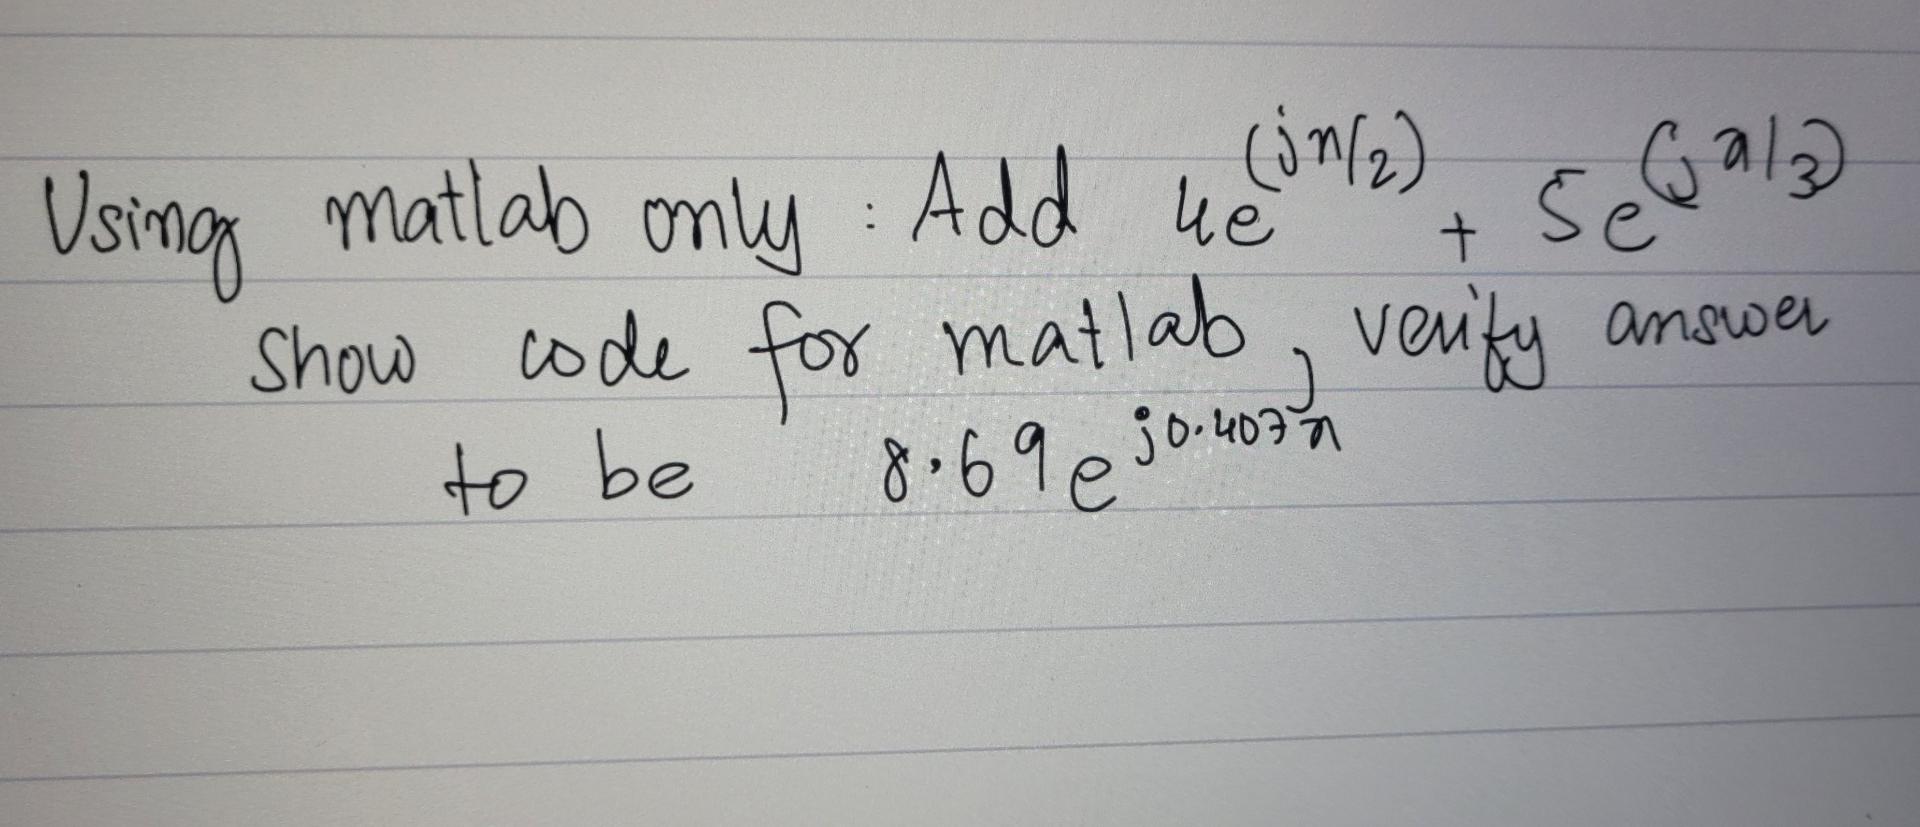 Using matlab only : Add 4e^(jπ/2) + 5e^(jπ/3)
show code for matlab, verify answer
to be 8.69e^j0.407π